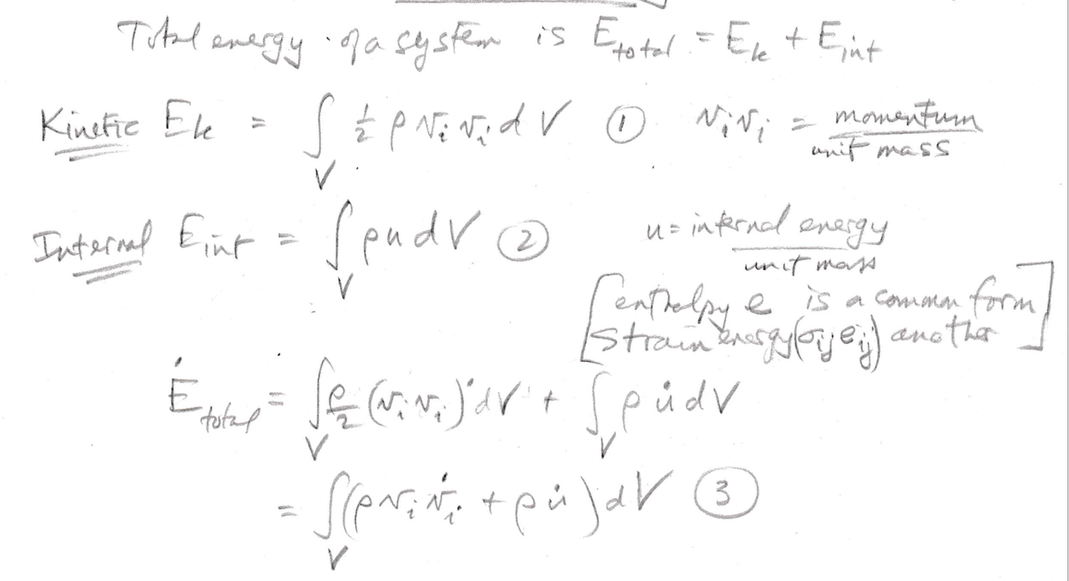 Total energy of a system is E_total = E_k + E_int
Kinetic E_k = ∫_V ½ ρ v_i v_i dV ① v_i v_i = momentum / unit mass
Internal E_int = ∫_V ρ u dV ② u = internal energy / unit mass
[enthalpy e is a common form
strain energy (σ_ij e_ij) another]
Ė_total = ∫_V ρ/2 (v_i v_i)˙ dV + ∫_V ρ u̇ dV
= ∫_V (ρ v_i v̇_i + ρ u̇) dV ③